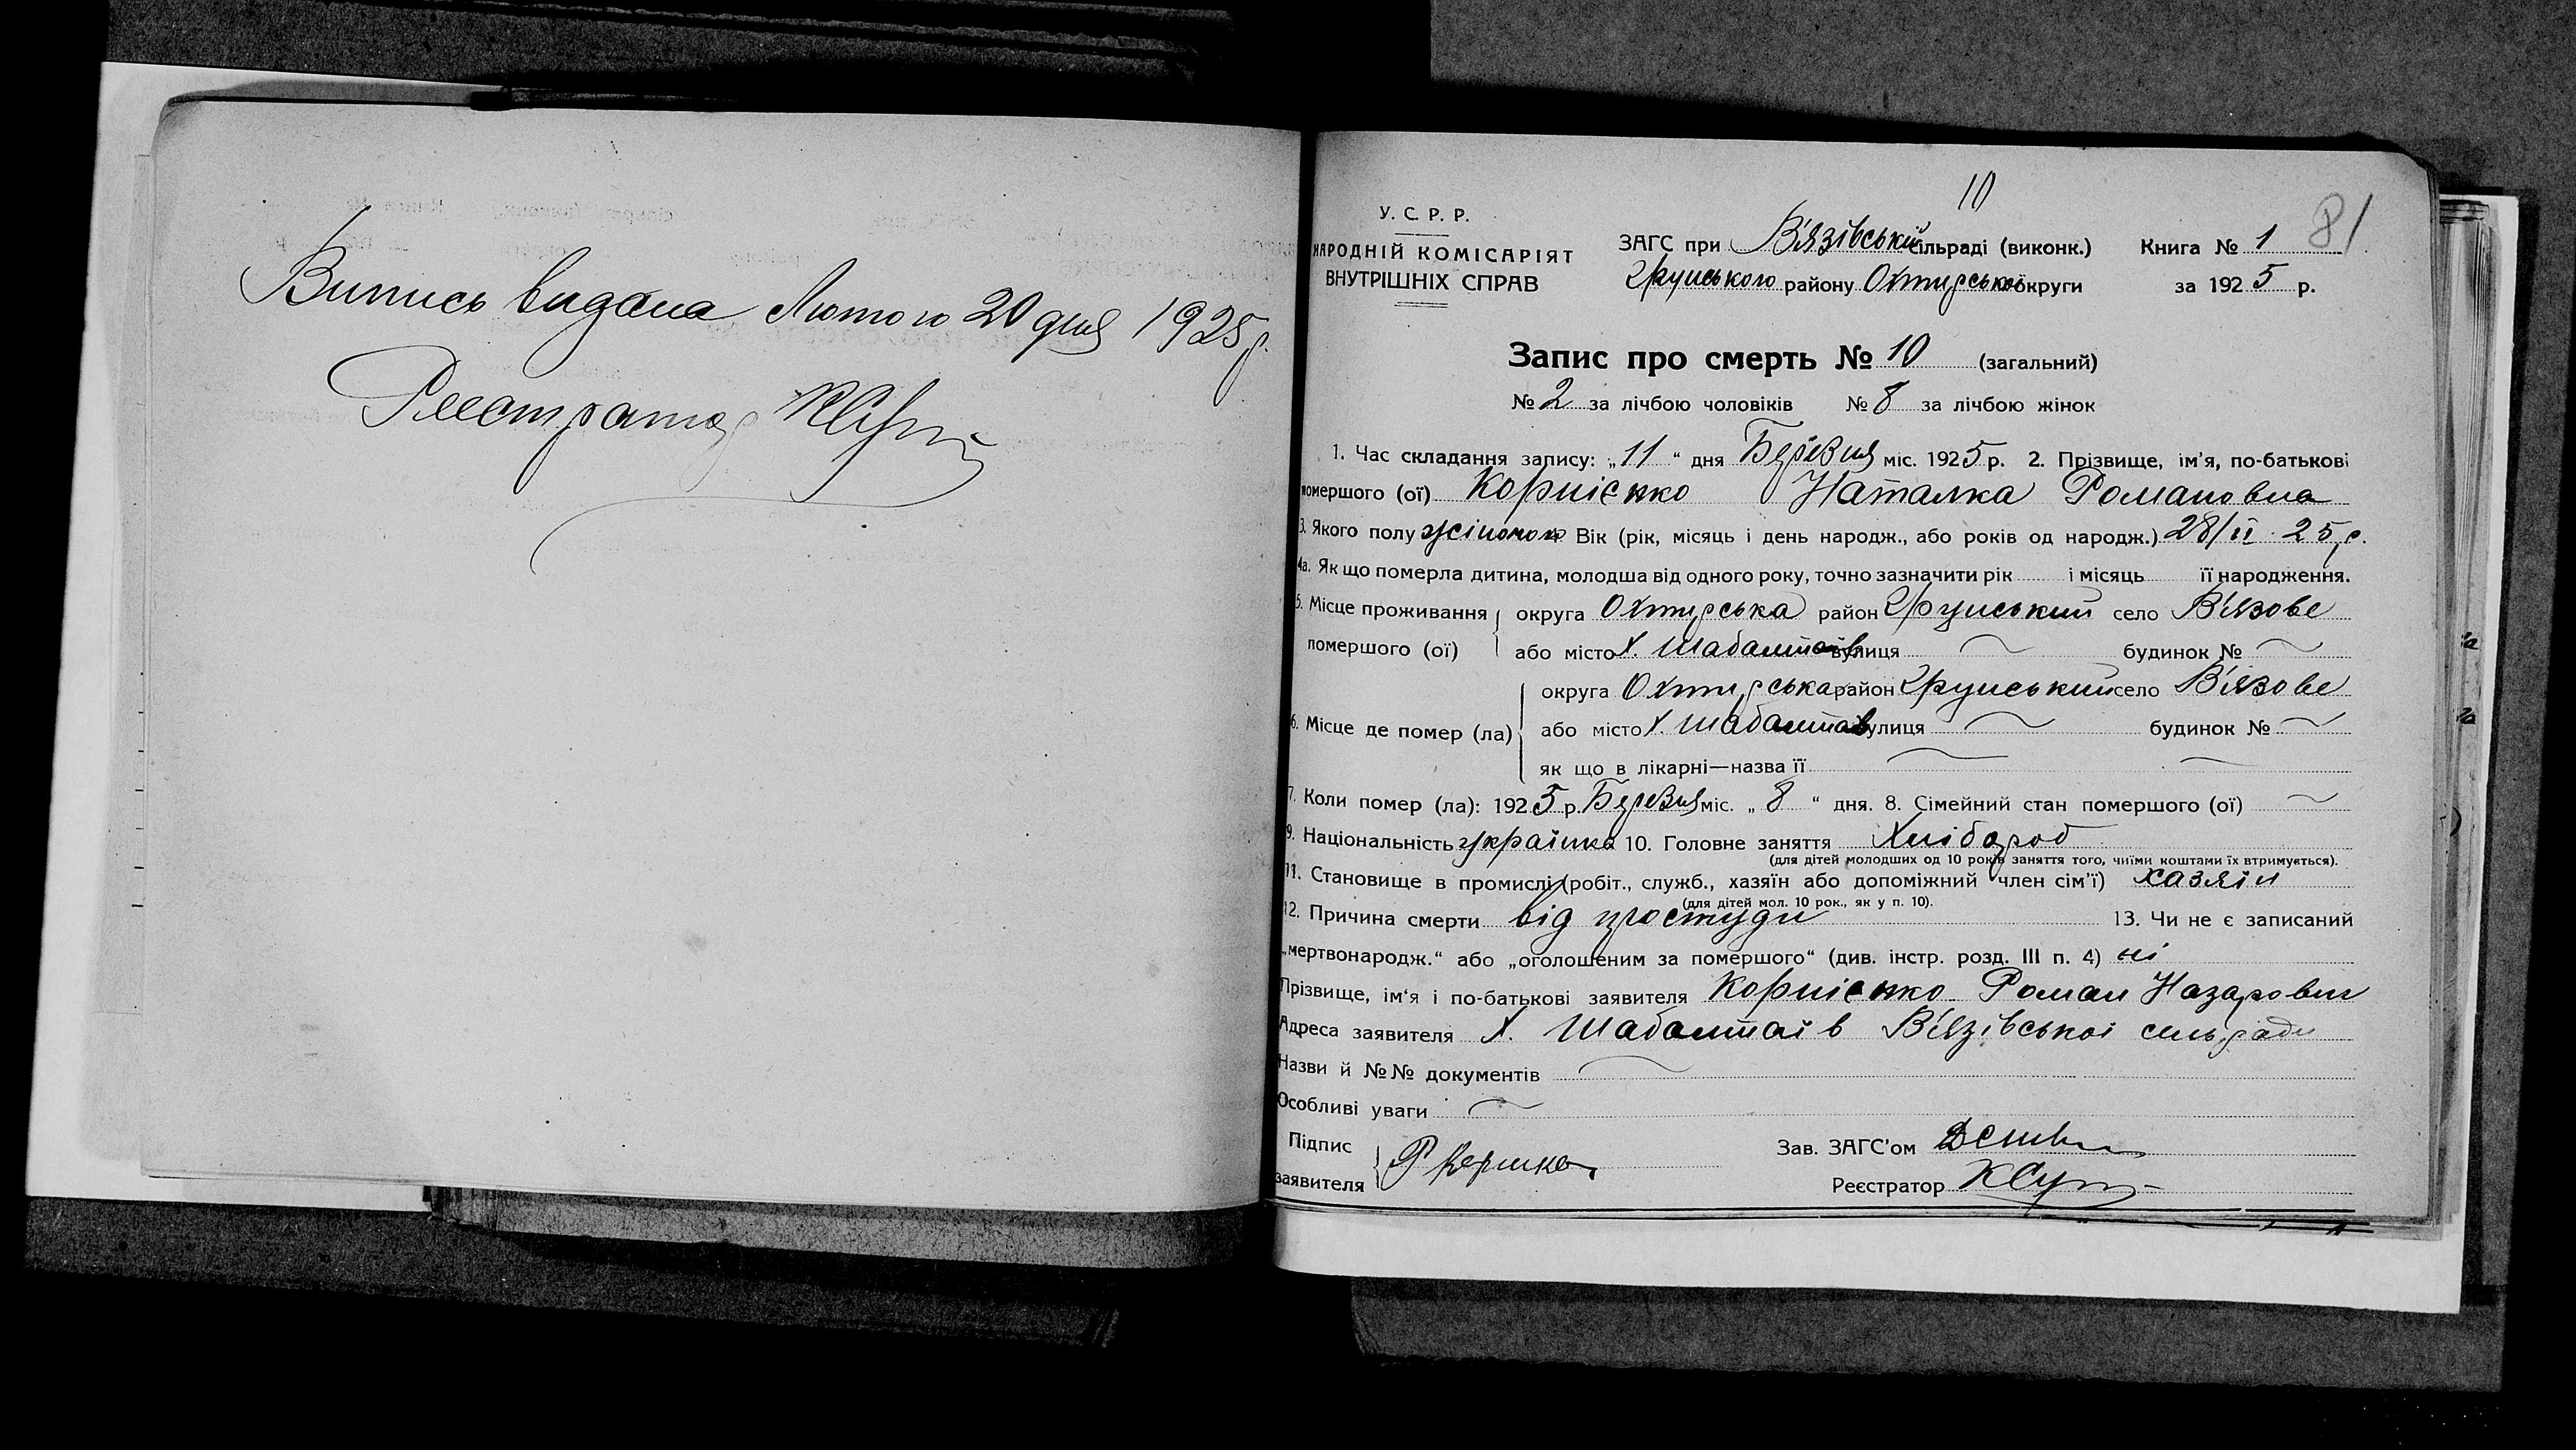 Випись видана Лютого 20 дня 1925 р.
Реєстратор
10
81
У. С. Р. Р.
НАРОДНІЙ КОМІСАРІЯТ
ВНУТРІШНІХ СПРАВ
ЗАГС при В'язівській сільраді (виконк.) Книга № 1
Грунського району Охтирської округи за 1925 р.
Запис про смерть № 10 (загальний)
№ 2 за лічбою чоловіків № 8 за лічбою жінок
1. Час складання запису: „11“ дня Березня міс. 1925 р. 2. Прізвище, ім'я, по-батькові
помершого (ої) Корнієнко Наталка Романовна
3. Якого полу жіночого 4. Вік (рік, місяць і день народж., або років од народж.) 28/II 25 р.
4а. Як що померла дитина, молодша від одного року, точно зазначити рік і місяць її народження.
5. Місце проживання округа Охтирська район Грунський село В'язове
помершого (ої) або місто Х. Шабалтаїв вулиця будинок №
округа Охтирська район Грунський село В'язове
6. Місце де помер (ла) або місто Х. Шабалтаїв вулиця будинок №
як що в лікарні—назва її
7. Коли помер (ла): 1925 р. Березня міс. „8“ дня. 8. Сімейний стан помершого (ої)
9. Національність українка 10. Головне заняття Хлібороб
(для дітей молодших од 10 років заняття того, чиїми коштами їх втримується).
11. Становище в промислі (робіт., служб., хазяїн або допоміжний член сім'ї) хазяїн
(для дітей мол. 10 рок., як у п. 10).
12. Причина смерти від простуди 13. Чи не є записаний
„мертвонародж.“ або „оголошеним за помершого“ (див. інстр. розд. III п. 4) ні
Прізвище, ім‘я і по-батькові заявителя Корнієнко Роман Назарович
Адреса заявителя Х. Шабалтаїв В'язівської сільради
Назви й №№ документів
Особливі уваги
Підпис
заявителя
Зав. ЗАГС'ом
Реєстратор